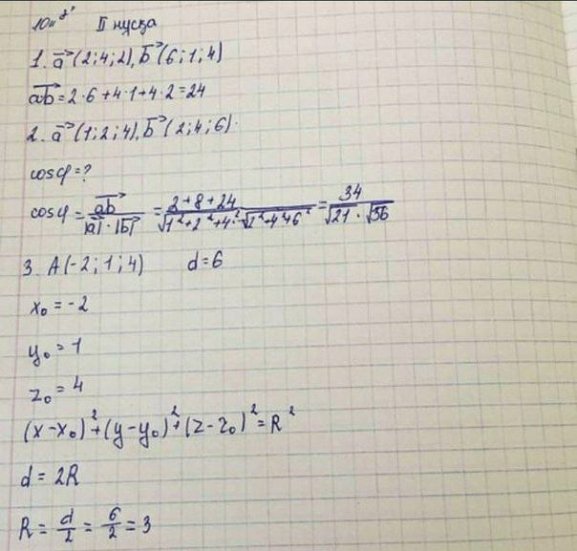 10 "г" II нұсқа
1. a⃗ (2;4;2), b⃗ (6;1;4)
ab⃗ = 2·6+4·1+4·2=24
2. a⃗ (1;2;4), b⃗ (2;4;6).
cosφ=?
cosφ = ab⃗ / |a⃗|·|b⃗| = 2+8+24 / √1²+2²+4² · √2²+4²+6² = 34 / √21 · √56
3. A(-2;1;4) d=6
x₀ = -2
y₀ = 1
z₀ = 4
(x-x₀)²+(y-y₀)²+(z-z₀)²=R²
d = 2R
R = d/2 = 6/2 = 3